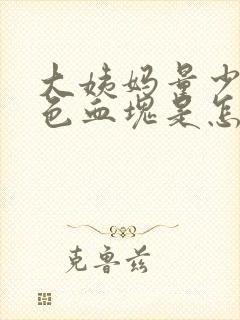 大姨妈量少
色血块是怎
克鲁兹